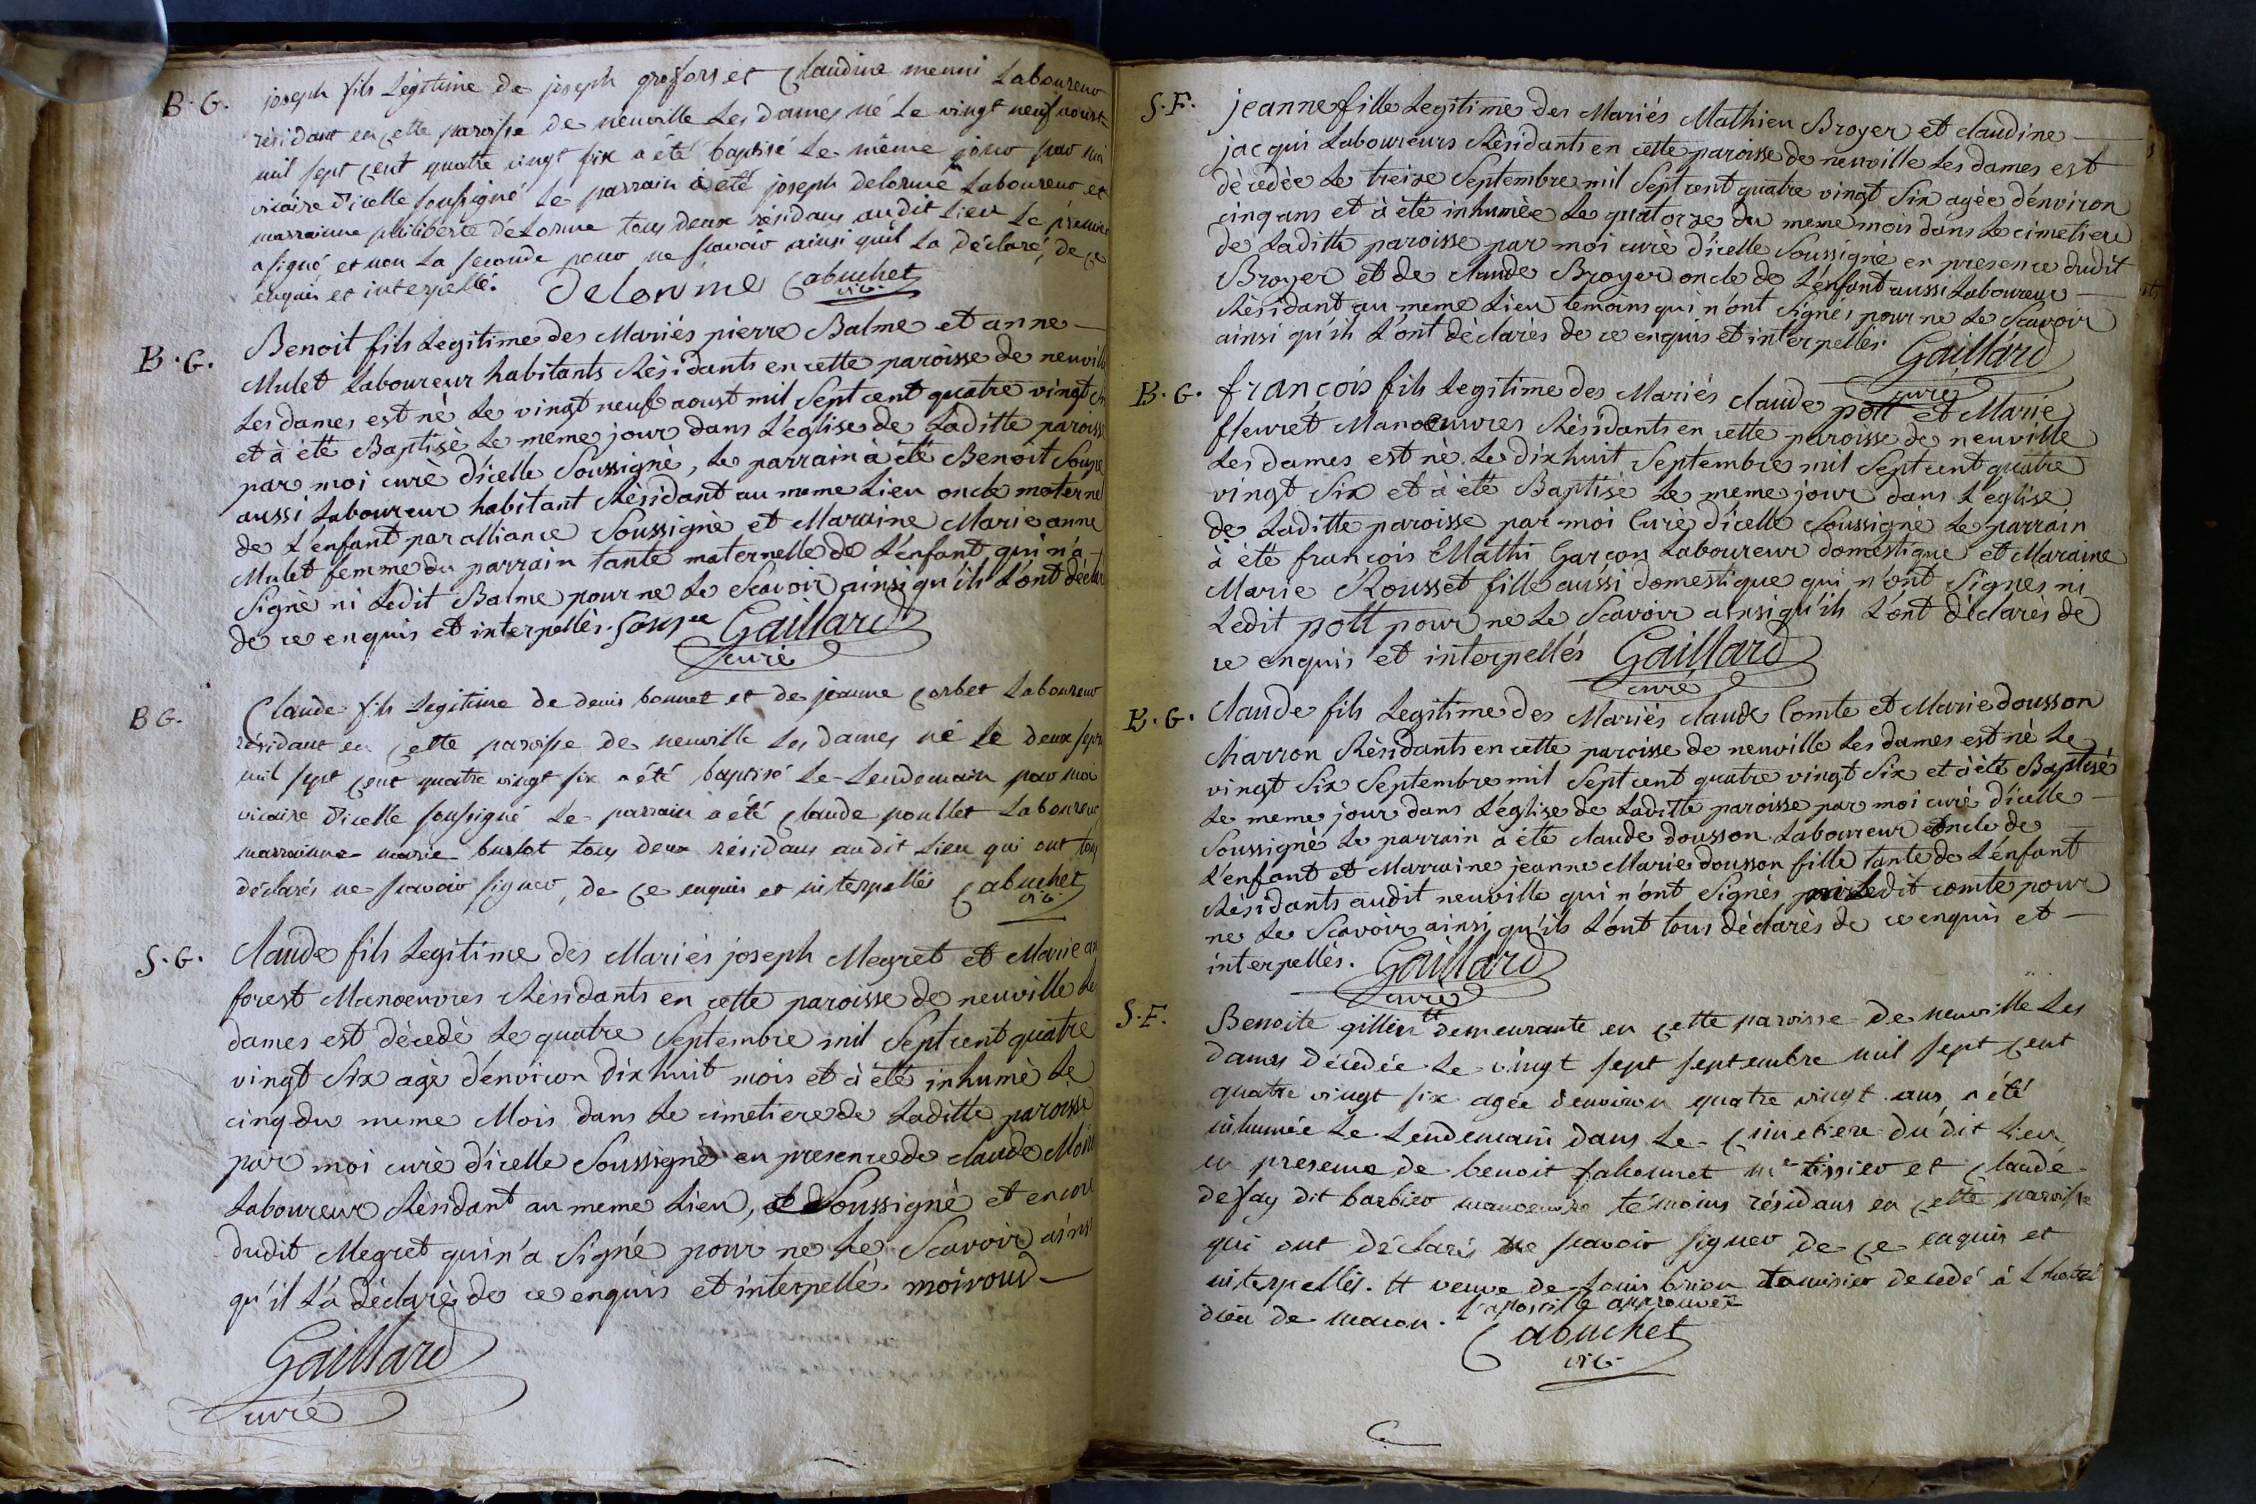 B. G.
joseph fils Légitime de joseph grosfort et Claudine menni Laboureur
résidant en cette paroisse de neuville Les dames né Le vingt neuf aoust
mil sept cent quatre vingt six a été baptisé Le même jour par moi
vicaire d'icelle soussigné Le parrain a été joseph delorme Laboureur et
marrainne philiberte déLorme tous deux résidans audit Lieu Le premier
a signé et non La seconde pour ne scavoir ainsi quil La déclaré, de ce
enquis et interpellé. Delorme Cabuchet
vic.
B. G.
Benoit fils Legitime des Mariés pierre Balme et anne
Mulet Laboureur habitants Résidants en cette paroisse de neuville
Les dames est nè Le vingt neuf aoust mil Sept cent quatre vingt Six
et à étè Baptisè Le meme jour dans L'église de Laditte paroisse
par moi curè d'icelle Soussignè, Le parrain à étè Benoit
aussi Laboureur habitant Rèsidant au meme Lieu oncle maternel
de L'enfant par alliance Soussignè et Maraine Marie anne
Mulet femme du parrain tante maternelle de L'enfant qui n'a
Signè ni Ledit Balme pour ne Le Scavoir ainsi qu'ils L'ont déclaré
de ce enquis et interpellès. Gaillard
curé
B G.
Claude fils Legitime de denis bonnet et de jeanne Corbet Laboureur
résidant en cette paroisse de neuville Les dames né le deux septe
mil sept cent quatre vingt six a été baptisé Le Lendemain par moi
vicaire d'icelle soussigné Le parrain a été Claude poullet Laboureur
marrainne marie burlot tous deux résidans audit Lieu qui ont tous
déclarés ne scavoir signer, de ce enquis et interpellés Cabuchet
vic.
S. G.
Claude fils Legitime des Mariés joseph Megret et Marie an
forest Manoeuvres Rèsidants en cette paroisse de neuville Les
dames est décedè Le quatre Septembre mil Sept cent quatre
vingt Six agè d'environ dix huit mois et à été inhumè Le
cinq du meme Mois dans Le cimetiere de Laditte paroisse
par moi curè d'icelle Soussignè en presence de claude Moiv
Laboureur Rèsidant au meme Lieu, Soussignè et encore
dudit Megret qui n'a Signé pour ne Le Scavoir ainsi
qu'il L'a déclarè de ce enquis et interpellè. moiroud
Gaillard
curé
S. F.
jeanne fille Legitime des Mariés Mathieu Broyer et claudine
jacqui Laboureurs Rèsidants en cette paroisse de neuville Les dames est
dècedèe Le treize Septembre mil Sept cent quatre vingt Six agèe d'environ
cinq ans et à ètè inhumèe Le quatorze du meme mois dans Le cimetiere
de Laditte paroisse par moi curè d'icelle Soussignè en presence dudit
Broyer et de claude Broyer oncle de L'enfant aussi Laboureur
Rèsidant au meme Lieu temoins qui n'ont Signés pour ne Le Scavoir
ainsi qu'ils L'ont dèclarès de ce enquis et interpellès. Gaillard
curé
B. G.
françois fils Legitime des Mariés claude pott et Marie
fleuret Manoeuvres Rèsidants en cette paroisse de neuville
Les dames est nè Le dixhuit Septembre mil Sept cent quatre
vingt Six et à étè Baptisè Le meme jour dans L'église
de Laditte paroisse par moi Curè d'icelle Soussignè Le parrain
à étè françois Mathi Garçon Laboureur domestique et Maraine
Marie Rousset fille aussi domestique qui n'ont Signès ni
Ledit pott pour ne Le Scavoir ainsi qu'ils L'ont dèclarès de
ce enquis et interpellés Gaillard
curé
B. G.
Claude fils Legitime des Mariés claude Comte et Marie dousson
charron Rèsidants en cette paroisse de neuville Les dames est nè Le
vingt Six Septembre mil Sept cent quatre vingt Six et à étè Baptisè
Le meme jour dans L'église de Laditte paroisse par moi curè d'icelle
Soussignè Le parrain a ètè claude dousson Laboureur oncle de
L'enfant et Marraine jeanne Marie dousson fille tante de L'enfant
Rèsidants audit neuville qui n'ont Signès ni Ledit comte pour
ne Le Scavoir ainsi qu'ils L'ont tous dèclarès de ce enquis et
interpellès. Gaillard
curé
S. F.
Benoite gillin # demeurante en cette paroisse de neuville Les
dames décedée Le vingt sept septembre mil sept cent
quatre vingt six agée denviron quatre vingt ans a été
inhumée Le Lendemain dans Le Cimetiere du dit Lieu
en presence de benoit jahonnet me tissier et Claude
defay dit barbier manoeuvre témoins résidans en cette paroisse
qui ont déclarés ne scavoir signer de ce enquis et
interpellés. # veuve de Louis brion decedé à L'hotel
dieu de macon. L'apostille approuvée
Cabuchet
vic.